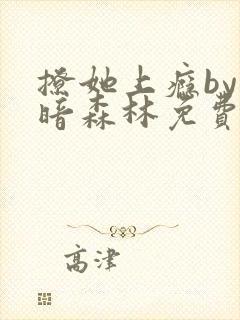 撩她上瘾by
暗森林免費
高津